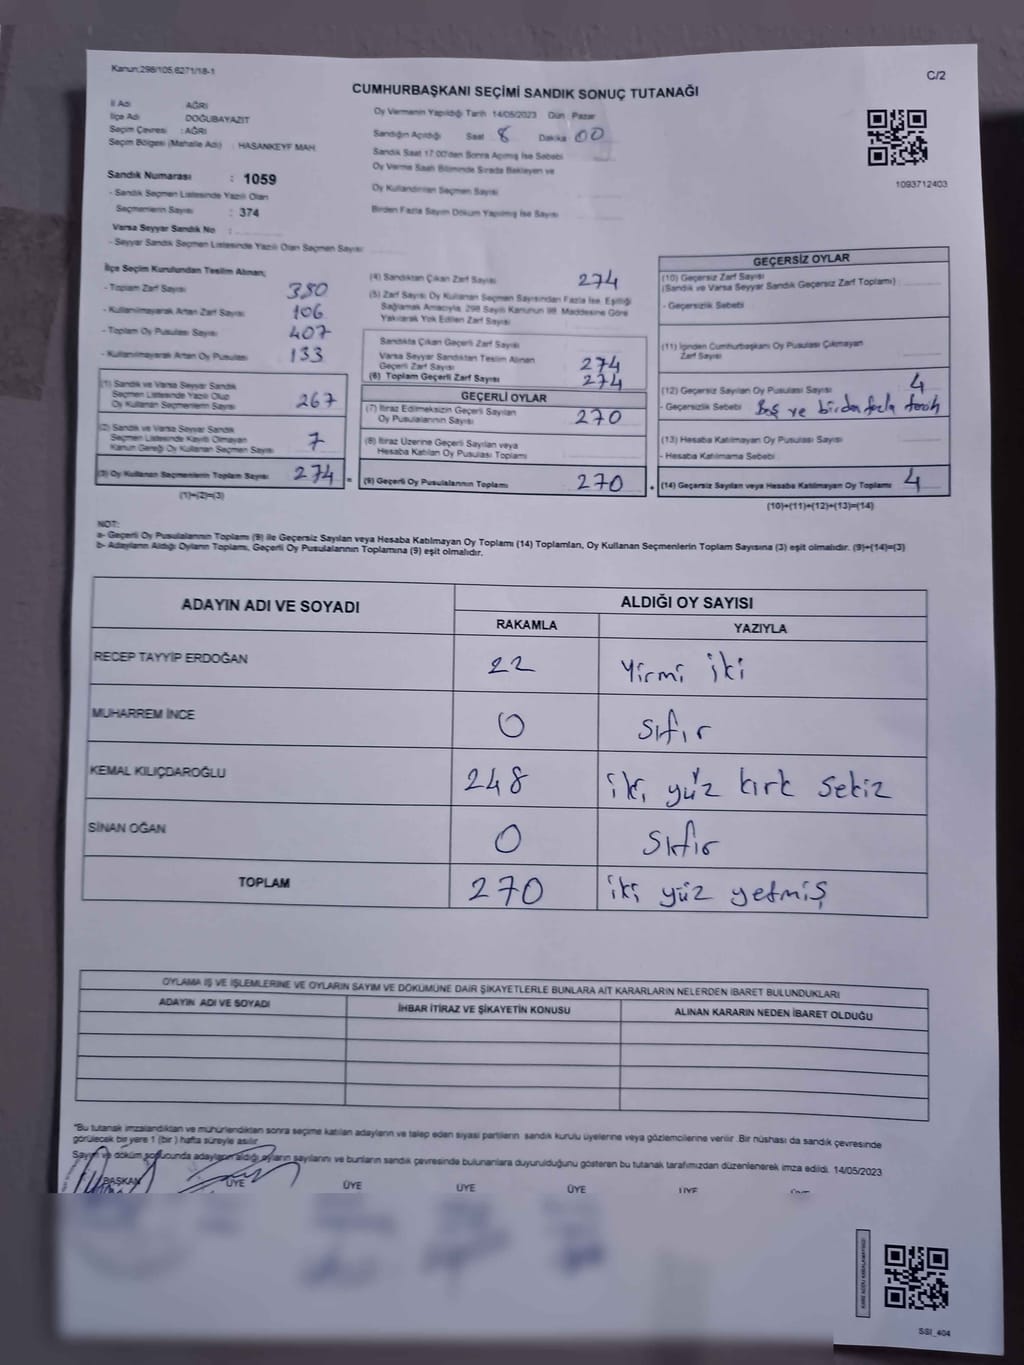 Kanun:298/105,6271/18-1
C/2
CUMHURBAŞKANI SEÇİMİ SANDIK SONUÇ TUTANAĞI
İl Adı AĞRI
İlçe Adı DOĞUBAYAZIT
Seçim Çevresi : AĞRI
Seçim Bölgesi (Mahalle Adı) : HASANKEYF MAH.
Oy Vermenin Yapıldığı Tarih 14/05/2023 Gün Pazar
Sandığın Açıldığı Saat 8 Dakika 00
Sandık Saat 17:00'den Sonra Açılmış İse Sebebi
Oy Verme Saati Bitiminde Sırada Bekleyen ve
Oy Kullandırılan Seçmen Sayısı
Birden Fazla Sayım Döküm Yapılmış İse Sayısı
1093712403
Sandık Numarası : 1059
- Sandık Seçmen Listesinde Yazılı Olan
Seçmenlerin Sayısı : 374
Varsa Seyyar Sandık No :
- Seyyar Sandık Seçmen Listesinde Yazılı Olan Seçmen Sayısı:
İlçe Seçim Kurulundan Teslim Alınan;
- Toplam Zarf Sayısı 380
- Kullanılmayarak Artan Zarf Sayısı 106
- Toplam Oy Pusulası Sayısı 407
- Kullanılmayarak Artan Oy Pusulası 133
(1) Sandık ve Varsa Seyyar Sandık
Seçmen Listesinde Yazılı Olup
Oy Kullanan Seçmenlerin Sayısı 267
(2) Sandık ve Varsa Seyyar Sandık
Seçmen Listesinde Kayıtlı Olmayan
Kanun Gereği Oy Kullanan Seçmen Sayısı 7
(3) Oy Kullanan Seçmenlerin Toplam Sayısı 274 =
(1)+(2)=(3)
(4) Sandıktan Çıkan Zarf Sayısı 274
(5) Zarf Sayısı Oy Kullanan Seçmen Sayısından Fazla İse, Eşitliği
Sağlamak Amacıyla, 298 Sayılı Kanunun 98. Maddesine Göre
Yakılarak Yok Edilen Zarf Sayısı
Sandıkta Çıkan Geçerli Zarf Sayısı
Varsa Seyyar Sandıktan Teslim Alınan
Geçerli Zarf Sayısı 274
(6) Toplam Geçerli Zarf Sayısı 274
GEÇERLİ OYLAR
(7) İtiraz Edilmeksizin Geçerli Sayılan
Oy Pusulalarının Sayısı 270
(8) İtiraz Üzerine Geçerli Sayılan veya
Hesaba Katılan Oy Pusulası Toplamı
(9) Geçerli Oy Pusulalarının Toplamı 270 +
GEÇERSİZ OYLAR
(10) Geçersiz Zarf Sayısı
(Sandık ve Varsa Seyyar Sandık Geçersiz Zarf Toplamı)
- Geçersizlik Sebebi
(11) İçinden Cumhurbaşkanı Oy Pusulası Çıkmayan
Zarf Sayısı
(12) Geçersiz Sayılan Oy Pusulası Sayısı 4
- Geçersizlik Sebebi Boş ve birden fazla tercih
(13) Hesaba Katılmayan Oy Pusulası Sayısı
- Hesaba Katılmama Sebebi
(14) Geçersiz Sayılan veya Hesaba Katılmayan Oy Toplamı 4
(10)+(11)+(12)+(13)=(14)
NOT:
a- Geçerli Oy Pusulalarının Toplamı (9) ile Geçersiz Sayılan veya Hesaba Katılmayan Oy Toplamı (14) Toplamları, Oy Kullanan Seçmenlerin Toplam Sayısına (3) eşit olmalıdır. (9)+(14)=(3)
b- Adayların Aldığı Oyların Toplamı, Geçerli Oy Pusulalarının Toplamına (9) eşit olmalıdır.
ADAYIN ADI VE SOYADI ALDIĞI OY SAYISI
RAKAMLA YAZIYLA
RECEP TAYYİP ERDOĞAN 22 Yirmi iki
MUHARREM İNCE 0 Sıfır
KEMAL KILIÇDAROĞLU 248 iki yüz kırk sekiz
SİNAN OĞAN 0 Sıfır
TOPLAM 270 iki yüz yetmiş
OYLAMA İŞ VE İŞLEMLERİNE VE OYLARIN SAYIM VE DÖKÜMÜNE DAİR ŞİKAYETLERLE BUNLARA AİT KARARLARIN NELERDEN İBARET BULUNDUKLARI
ADAYIN ADI VE SOYADI İHBAR İTİRAZ VE ŞİKAYETİN KONUSU ALINAN KARARIN NEDEN İBARET OLDUĞU
"Bu tutanak imzalandıktan ve mühürlendikten sonra seçime katılan adayların ve talep eden siyasi partilerin sandık kurulu üyelerine veya gözlemcilerine verilir. Bir nüshası da sandık çevresinde
görülecek bir yere 1 (bir) hafta süreyle asılır.
Sayım ve döküm sonucunda adayların aldığı oyların sayılarını ve bunların sandık çevresinde bulunanlara duyurulduğunu gösteren bu tutanak tarafımızdan düzenlenerek imza edildi. 14/05/2023
BAŞKAN ÜYE ÜYE ÜYE ÜYE ÜYE
SSI_404